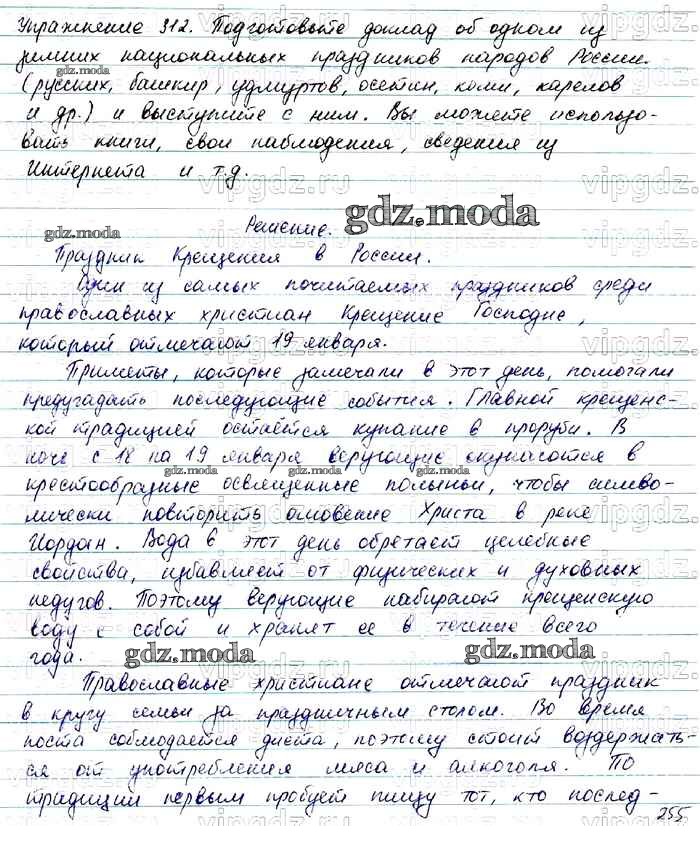 Упражнение 312. Подготовьте доклад об одном из
зимних национальных праздников народов России.
(русских, башкир, удмуртов, осетин, коми, карелов
и др.) и выступите с ним. Вы можете использо-
вать книги, свои наблюдения, сведения из
Интернета и т.д.
Решение.
gdz.moda
Праздник Крещения в России.
Один из самых почитаемых праздников среди
православных христиан Крещение Господне,
который отмечают 19 января.
Приметы, которые замечали в этот день, помогали
предугадать последующие события. Главной крещенс-
кой традицией остаётся купание в проруби. В
ночь с 18 на 19 января верующие окунаются в
крестообразные освещенные полыньи, чтобы симво-
лически повторить омовение Христа в реке
Иордан. Вода в этот день обретает целебные
свойства, избавляет от физических и духовных
недугов. Поэтому верующие набирают крещенскую
воду с собой и хранят ее в течение всего
года.
gdz.moda
Православные христиане отмечают праздник
в кругу семьи за праздничным столом. Во время
поста соблюдается диета, поэтому стоит воздержать-
ся от употребления мяса и алкоголя. По
традиции первым пробует пищу тот, кто послед-
255